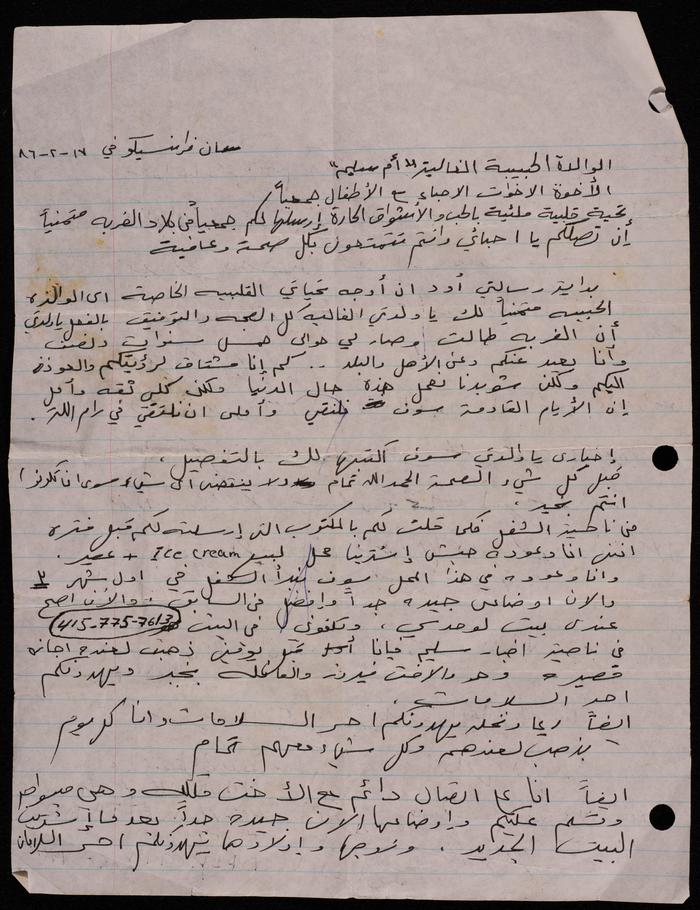 سان فرانسيسكو في ١٧-٢-٨٦
الوالدة الحبيبة الغالية "أم سليم"
الأخوة الاخوات الاحباء مع الأطفال جميعاً
تحية قلبية مليئة بالحب والأشواق الحارة إرسلها لكم جميعاً من بلاد الغربه متمنياً
إن تصلكم يا احبائي وانتم تتمتعون بكل صحة وعافية
بداية رسالتي أود ان أوجه تحياتي القلبيه الخاصة الى الوالده
الحبيبه متمنياً لك يا ولدتي الغاليه كل الصحه والتوفيق بالفعل يا ولدتي
أن الغربه طالت وصار لي حوالي خمس سنوات ونصف
وأنا بعيد عنكم وعن الأهل والبلد .. كم إنا مشتاق لرؤيتكم والعودة
اليكم ولكن شو بدنا نعمل هذه حال الدنيا ولكن كلي ثقه وأمل
إن الأيام القادمة سوف نلتقي وأملي ان نلتقي في رام الله.
إخباري يا ولدتي سوف أكتبها لك بالتفصيل،
قبل كل شيء الصحة الحمدالله تمام ولا ينقضى أي شيء سوى ان تكونوا
انتم بخير.
من ناحية الشغل فكما قلت لكم بالمكتوب التي إرسلته لكم قبل فتره
انني انا وعوده حنيش إشترينا محل لبيع Ice cream + عصير.
وانا وعوده في هذا المحل سوف نبدأ الشغل في اول شهر ٣
والان اوضاعي جيده جداً وافضل من السابق. والأن اصبح
عندي بيت لوحدي، وتلفوني في البيت 415-775-7613
من ناحية اخبار سليم فإنا قبل يومين ذهبت لعنده اجازه
قصيره وهو والاخت فيروز والعائله بخير ويهدونكم
احر السلامات.
ايضاً ريما ونخله يهدونكم احر السلامات وانا كل يوم
بذهب لعندهم وكل شيء معهم تمام
ايضاً انا على اتصال دائم مع الأخت وهي
وتسلم عليكم واوضاعها الان جيده جداً بعد ما أشترت
البيت الجديد. وزوجها وإولادها يهدونكم احر السلامات